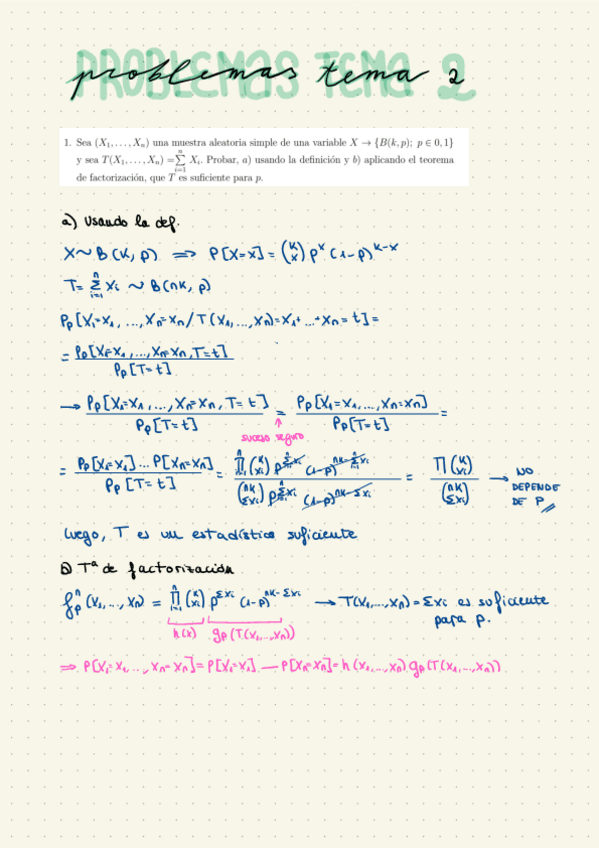 problemas tema 2
1. Sea (X₁, . . . , Xₙ) una muestra aleatoria simple de una variable X → {B(k, p); p ∈ 0, 1}
y sea T(X₁, . . . , Xₙ) = ∑ᵢ₌₁ⁿ Xᵢ. Probar, a) usando la definición y b) aplicando el teorema
de factorización, que T es suficiente para p.
a) Usando la def.
X ~ B(K, p) ⟹ P[X=x] = (K x) pˣ (1-p)ᴷ⁻ˣ
T = ∑ᵢ₌₁ⁿ Xᵢ ~ B(nK, p)
Pp[X₁=x₁, ..., Xn=xn / T(X₁, ..., Xn) = X₁+ ... + Xn = t] =
= Pp[X₁=x₁, ..., Xn=xn, T=t] / Pp[T=t]
→ Pp[X₁=x₁, ..., Xn=xn, T=t] / Pp[T=t] = Pp[X₁=x₁, ..., Xn=xn] / Pp[T=t] =
suceso seguro
= Pp[X₁=x₁] ... P[Xn=xn] / Pp[T=t] = ∏ᵢ₌₁ⁿ (K xi) p^∑ᵢ₌₁ⁿ xi (1-p)^nK-∑ᵢ₌₁ⁿ xi / (nK ∑xi) p^∑xi (1-p)^nK-∑xi = ∏ (K xi) / (nK ∑xi) → NO DEPENDE DE P
Luego, T es un estadístico suficiente
b) Tª de factorización
fₚⁿ (x₁, ..., xn) = ∏ᵢ₌₁ⁿ (K xi) p^∑xi (1-p)^nK-∑xi → T(X₁, ..., Xn) = ∑xi es suficiente para p.
h(x) gp(T(x₁, ..., xn))
⟹ P[X₁=x₁, ..., Xn=xn] = P[X₁=x₁] — P[Xn=xn] = h(x₁, ..., xn) gp(T(x₁, ..., xn))